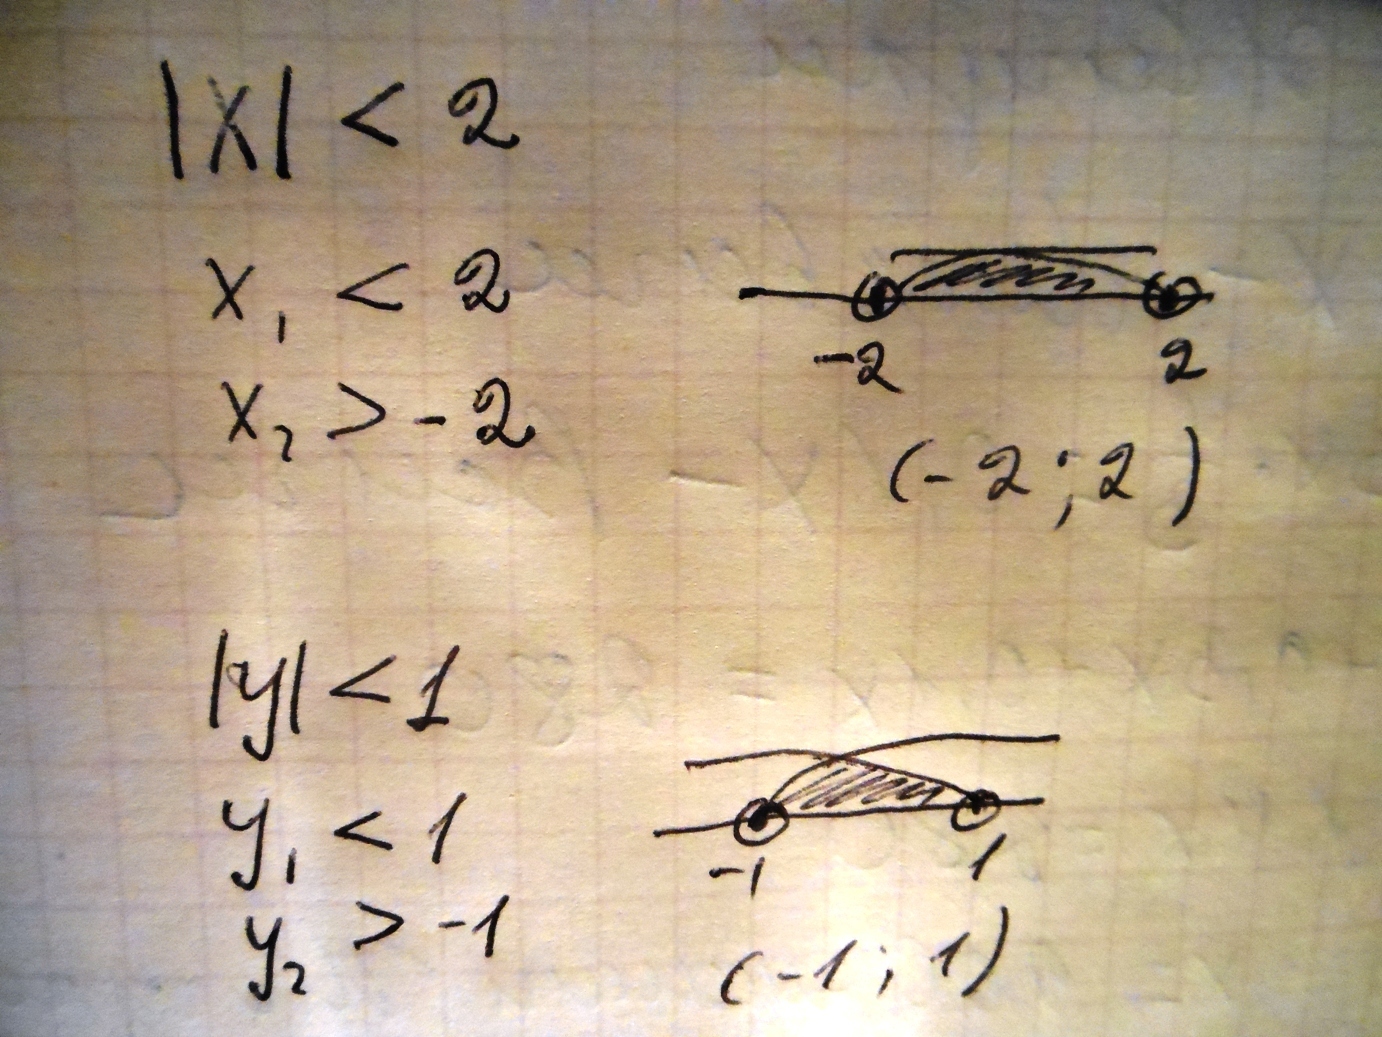 |x| < 2
x₁ < 2
x₂ > -2
-2 2
(-2 ; 2)
|y| < 1
y₁ < 1
y₂ > -1
-1 1
(-1 ; 1)